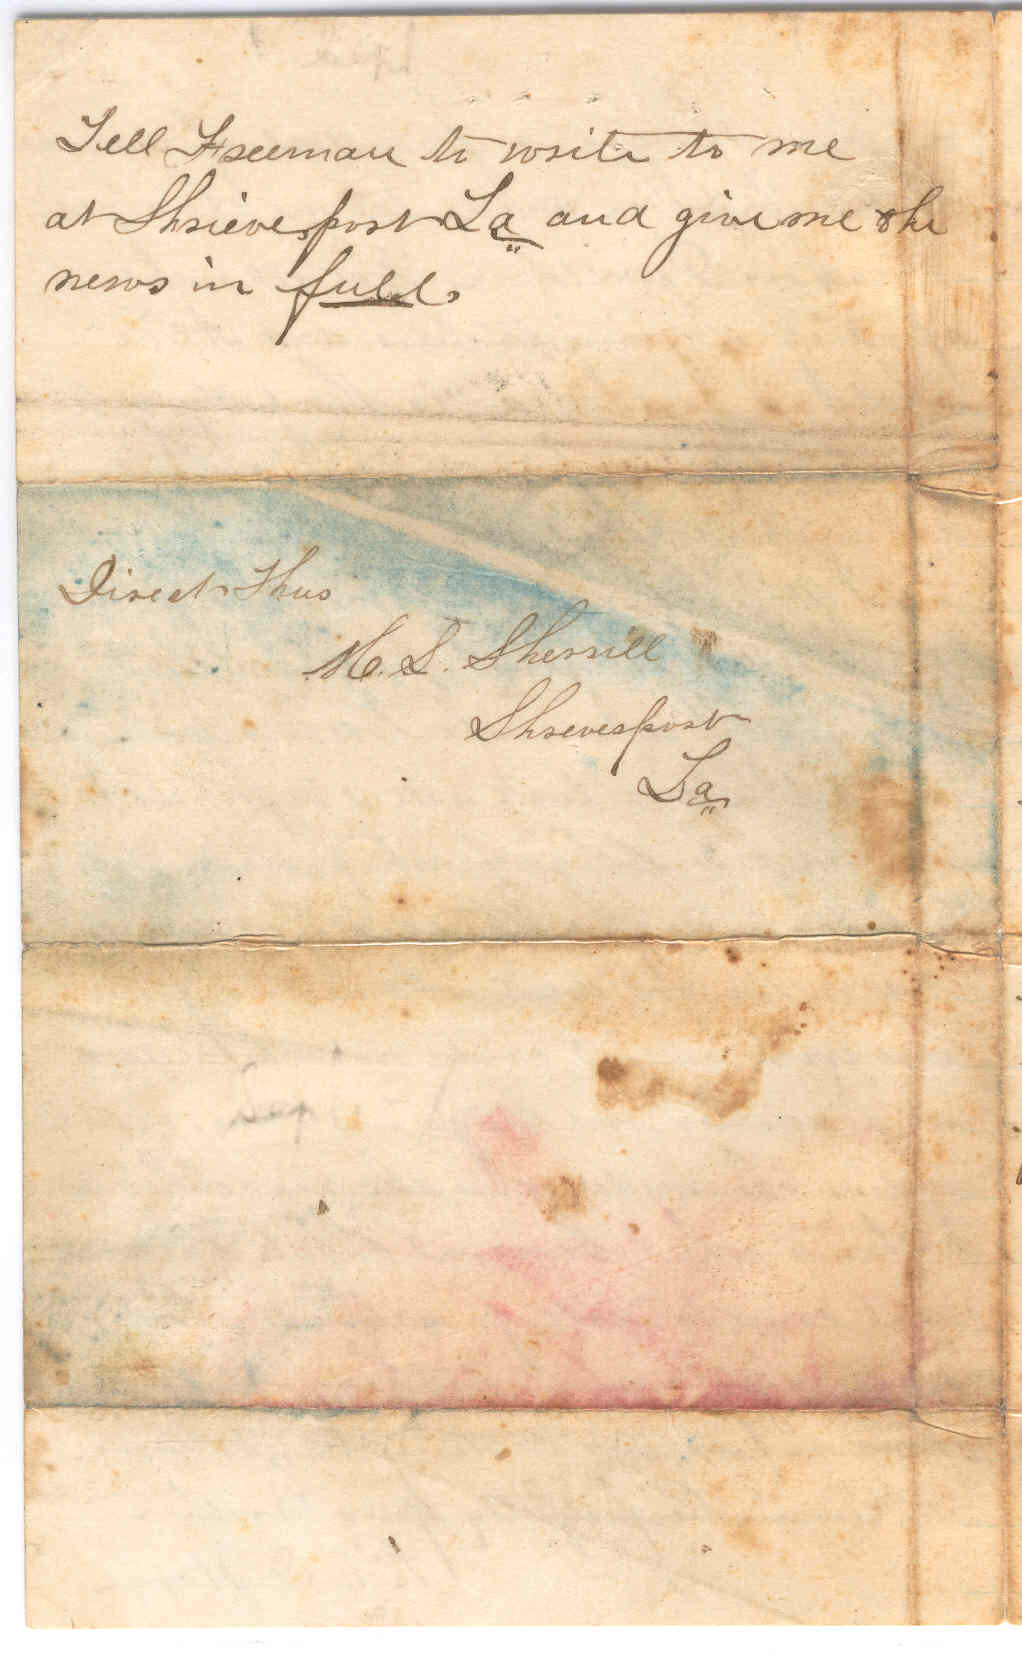 Tell Freeman to write to me
at Shrieveport La and give me the
news in full.
Direct Thus
M. S. Sherrill
Shreveport
La